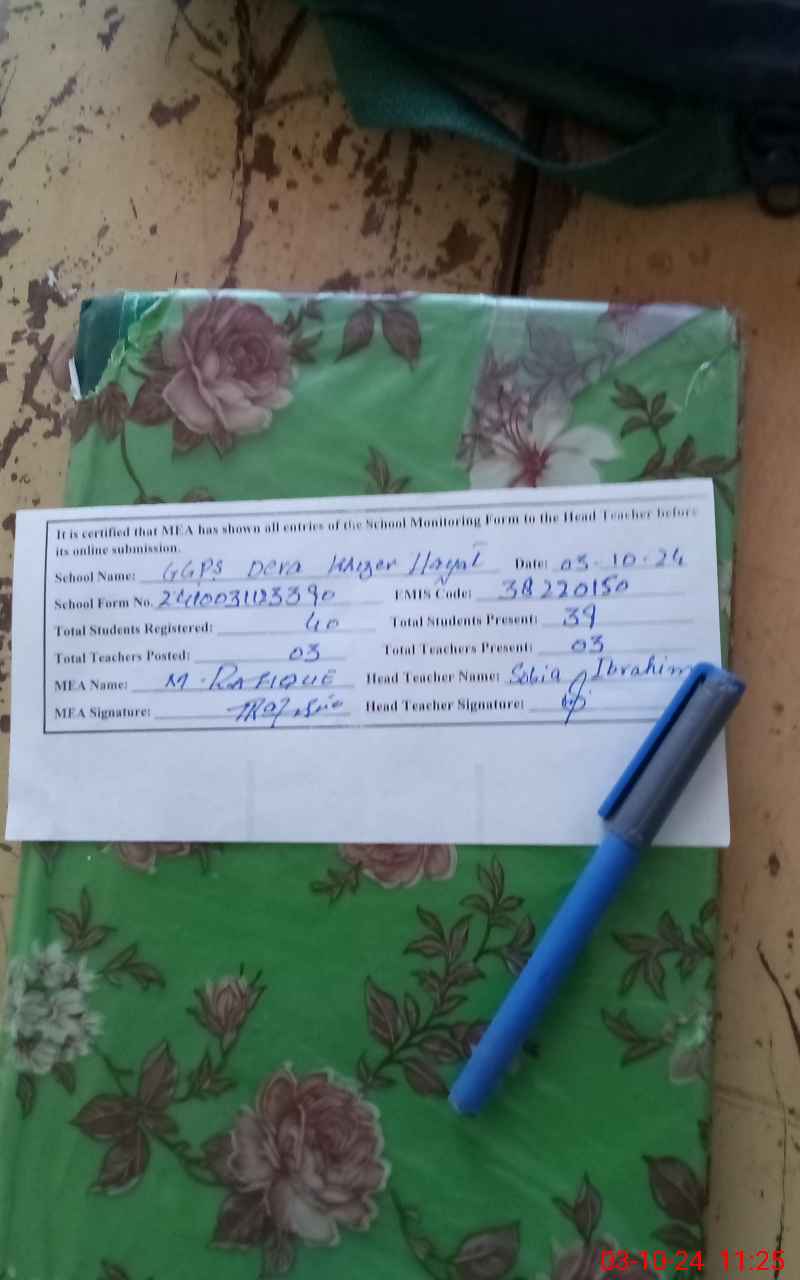 It is certified that MEA has shown all entries of the School Monitoring Form to the Head Teacher before
its online submission.
School Name: GGPS Dera Khizer Hayat Date: 03-10-24
School Form No. EMIS Code: 38220150
Total Students Registered: 40 Total Students Present: 39
Total Teachers Posted: 03 Total Teachers Present: 03
MEA Name: M. RAFIQUE Head Teacher Name: Sobia Ibrahim
MEA Signature: Head Teacher Signature:
03-10-24 11:25